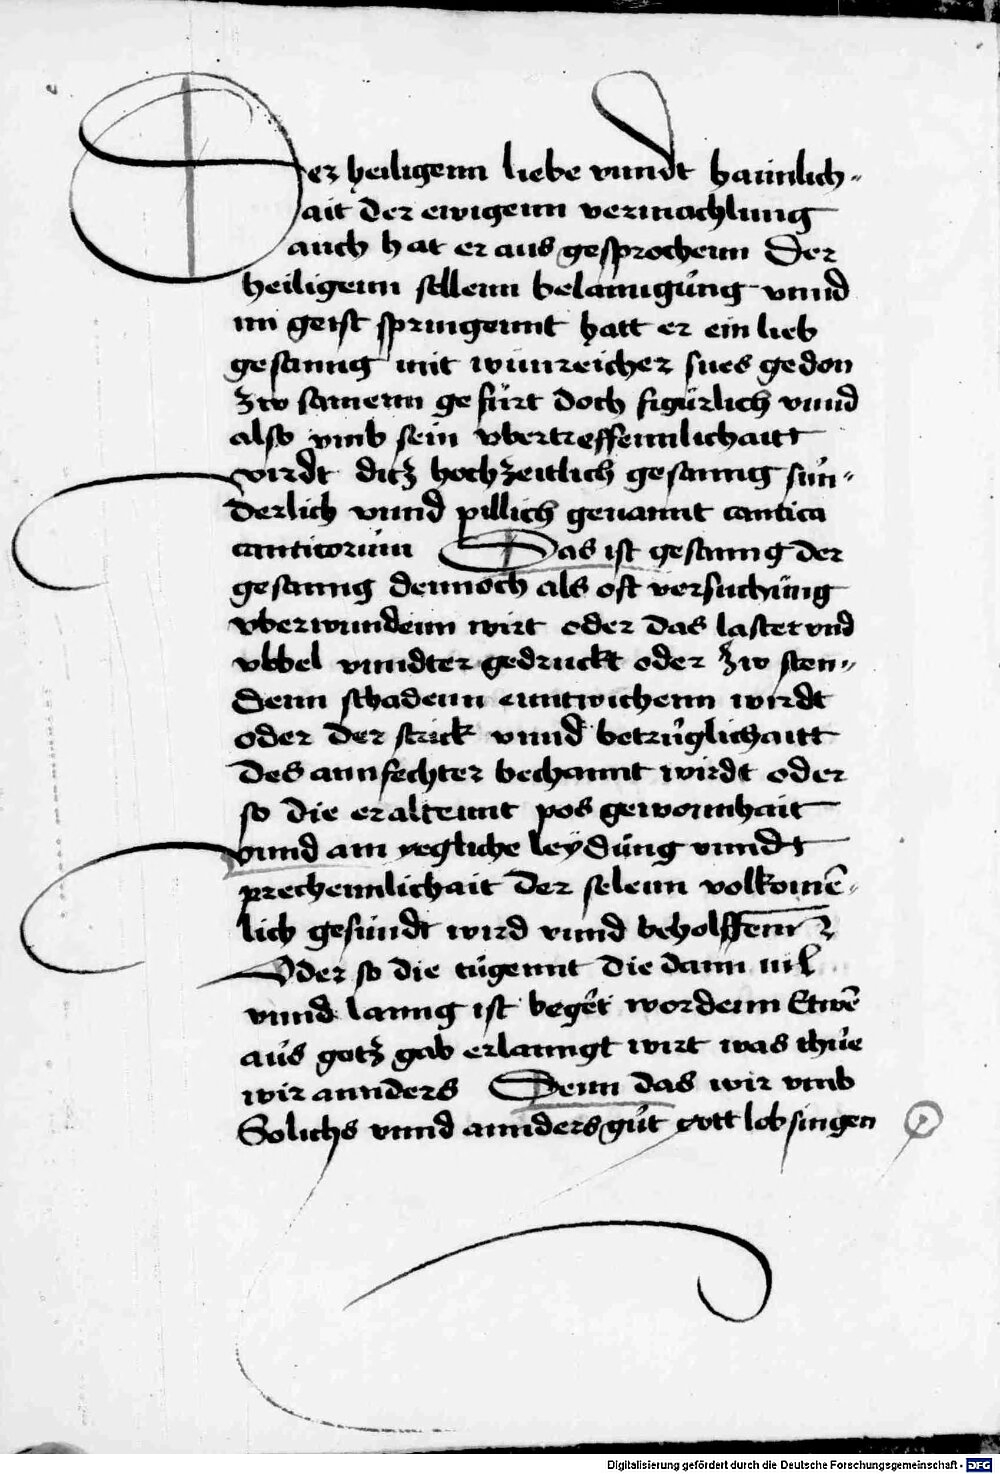 Der heiligenn liebe vnndt haimlich-
ait der ewigenn vermachlung
auch hat er aus gesprochenn Der
heiligenn sellenn belanngu̇ng vnnd
im geist springennt hatt er ein lieb
gesanng mit wunreicher sues gedon
zw samenn gefürt doch figu̇rlich vnnd
also vmb sein vbertreffennlichaitt
virdt ditz hochzeitlich gesanng su̇n-
derlich vnnd pillich genannt cantica
canticoru̇m Das ist gesanng der
gesanng dennoch als oft versuchu̇ng
vberwundenn wirt oder das laster vnd
vbbel vnndter gedruckt oder zw sten-
denn schadenn enntwichenn wirdt
oder der strick vnnd betru̇glichaitt
des annfechter bechannt wirdt oder
so die eraltennt pos gewonnhait
vnnd am yegliche leydu̇ng vnndt
prechennlichait der selenn volkomē-
lich gesu̇ndt wird vnnd beholffenn
Oder so die tu̇gennt die dann vil
vnnd lanng ist begert wordenn Etwē
au̇s gotz gab erlanngt wirt was thu̇e
wir annders Denn das wir vmb
Solichs vnnd annders gu̇t gott lobsingen
Digitalisierung gefördert durch die Deutsche Forschungsgemeinschaft - DFG